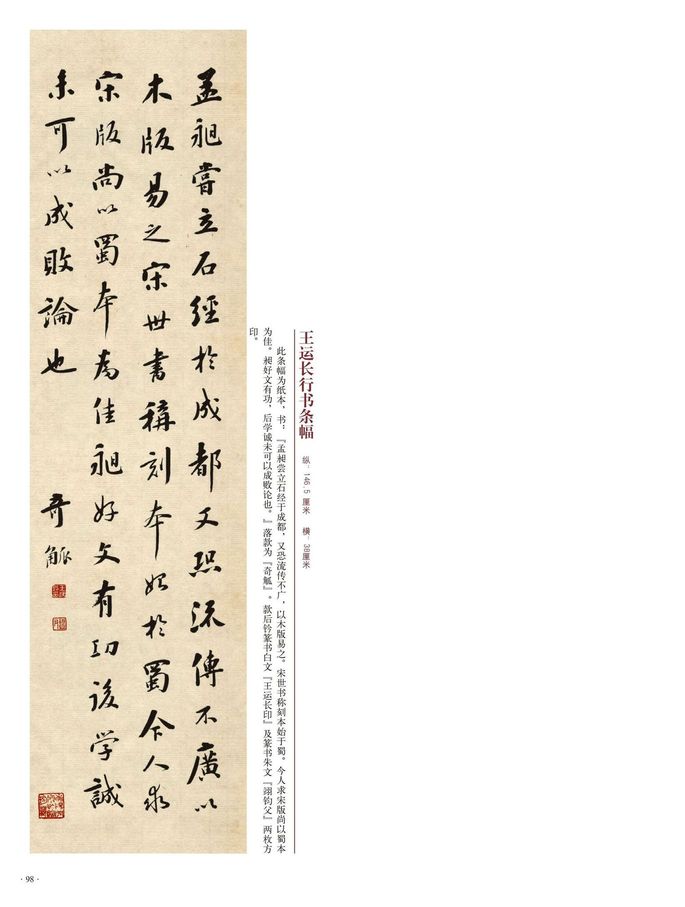 孟昶嘗立石經於成都又恐流傳不廣以
木版易之宋世書稱刻本始於蜀今人求
宋版尚以蜀本為佳昶好文有功後学誠
未可以成敗論也
奇觚
王运长行书条幅
纵：146.5厘米 横：38厘米
此条幅为纸本，书：『孟昶尝立石经于成都，又恐流传不广，以木版易之。宋世书称刻本始于蜀。今人求宋版尚以蜀本
为佳。昶好文有功，后学诚未可以成败论也。』落款为『奇觚』。款后钤篆书白文『王运长印』及篆书朱文『翊钧父』两枚方
印。
· 98 ·